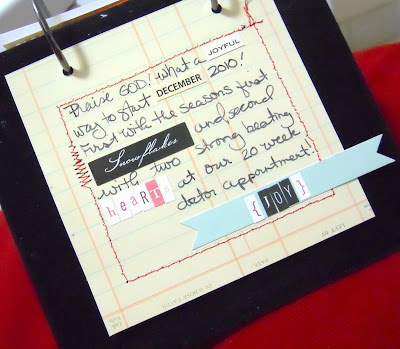 Praise GOD! What a JOYFUL
way to start DECEMBER 2010!
First with the seasons first
Snowflakes and second
with two strong beating
heaRTs at our 20 week
doctor appointment!
{JOY}
LEFT BY
DATE